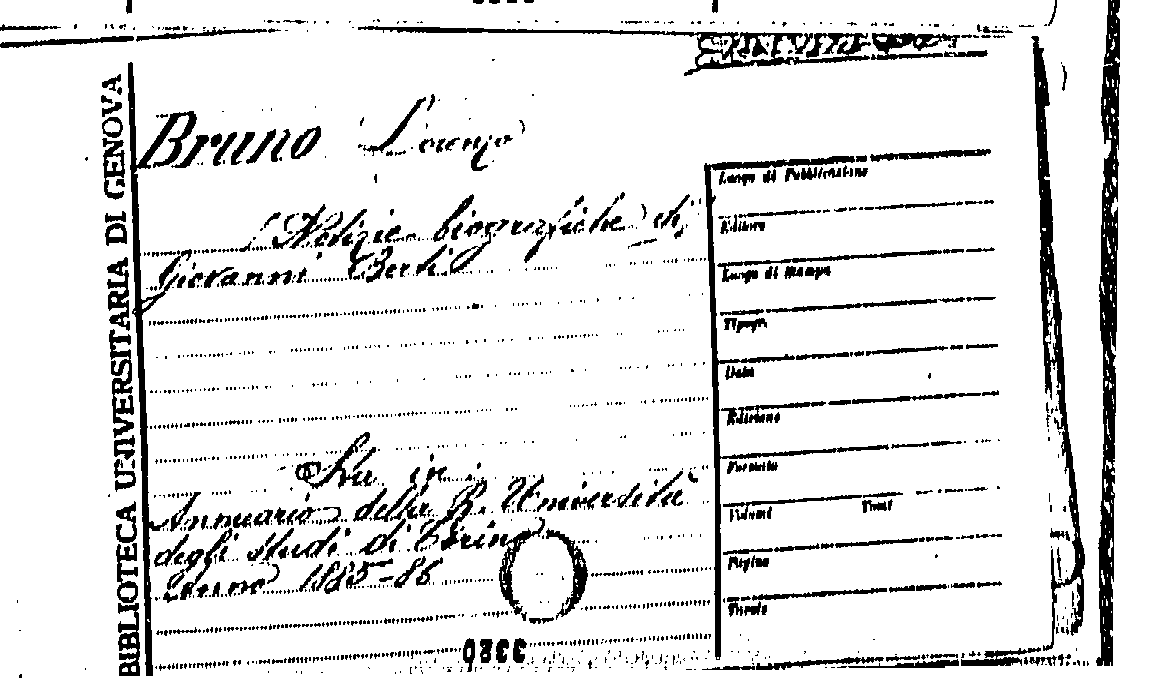 BIBLIOTECA UNIVERSITARIA DI GENOVA
Bruno Lorenzo
Notizie biografiche di
Giovanni Berti
Sta in:
Annuario della R. Università
degli studi di Torino
anno 1885-86
3320
Luogo di Pubblicazione
Editore
Luogo di Stampa
Tipogr.
Data
Edizione
Formato
Volumi Tomi
Pagine